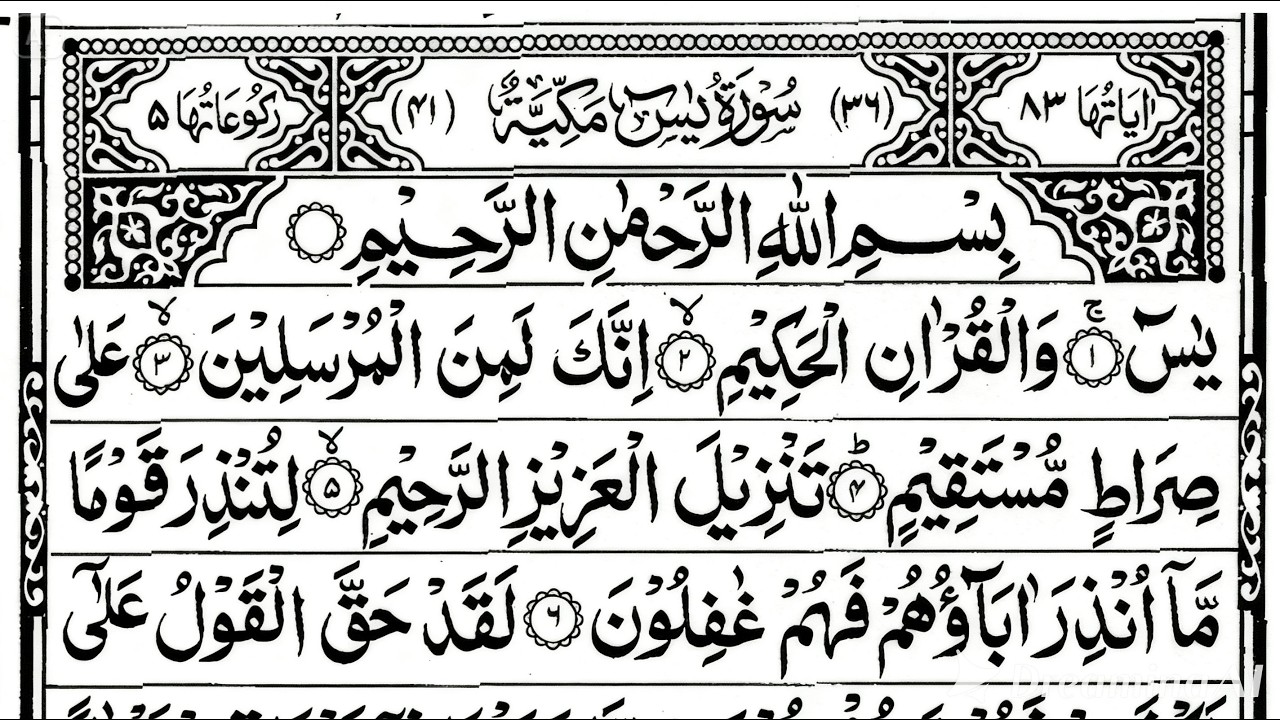 اٰيَاتُهَا ٨٣ (٣٦) سُوْرَةُ يٰسٓ مَكِّيَّةٌ (٤١) رُكُوْعَاتُهَا ۵
بِسْمِ اللّٰهِ الرَّحْمٰنِ الرَّحِيْمِ
يٰسٓ ۚ﴿١﴾ وَالْقُرْاٰنِ الْحَكِيْمِ ۙ﴿٢﴾ اِنَّكَ لَمِنَ الْمُرْسَلِيْنَ ۙ﴿٣﴾ عَلٰى
صِرَاطٍ مُّسْتَقِيْمٍ ؕ﴿۴﴾ تَنْزِيْلَ الْعَزِيْزِ الرَّحِيْمِ ۙ﴿۵﴾ لِتُنْذِرَ قَوْمًا
مَّآ اُنْذِرَ اٰبَآؤُهُمْ فَهُمْ غٰفِلُوْنَ ﴿۶﴾ لَقَدْ حَقَّ الْقَوْلُ عَلٰٓى